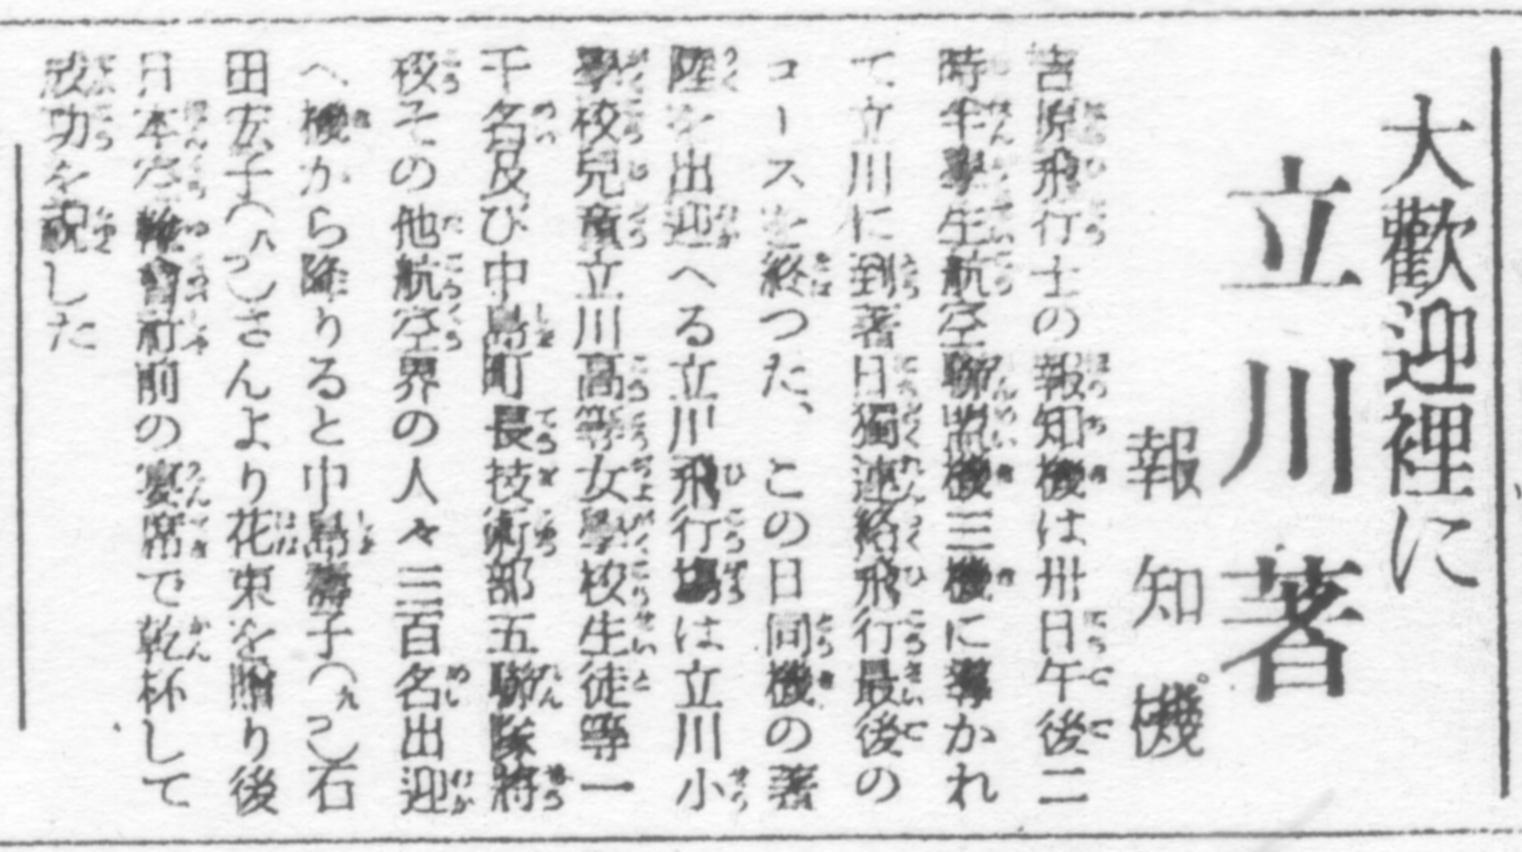 大歡迎裡に
立川著
報知機
吉原飛行士の報知機は卅日午後二
時半學生航空聯盟機三機に導かれ
て立川に到著日獨連絡飛行最後の
コースを終つた、この日同機の著
陸を出迎へる立川飛行場は立川小
學校兒童立川高等女學校生徒等一
千名及び中島町長技術部五聯隊將
校その他航空界の人々三百名出迎
へ機から降りると中島壽子(九つ)石
田宏子(八つ)さんより花束を贈り後
日本空輸會社前の宴席で乾杯して
成功を祝した